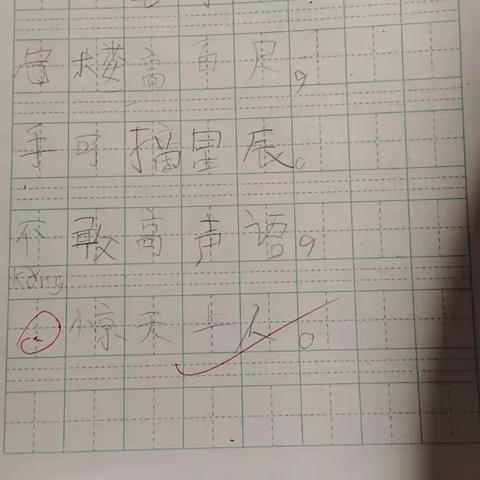 楼高百尺，
手可摘星辰。
不敢高声语，
kǒng
惊天上人。